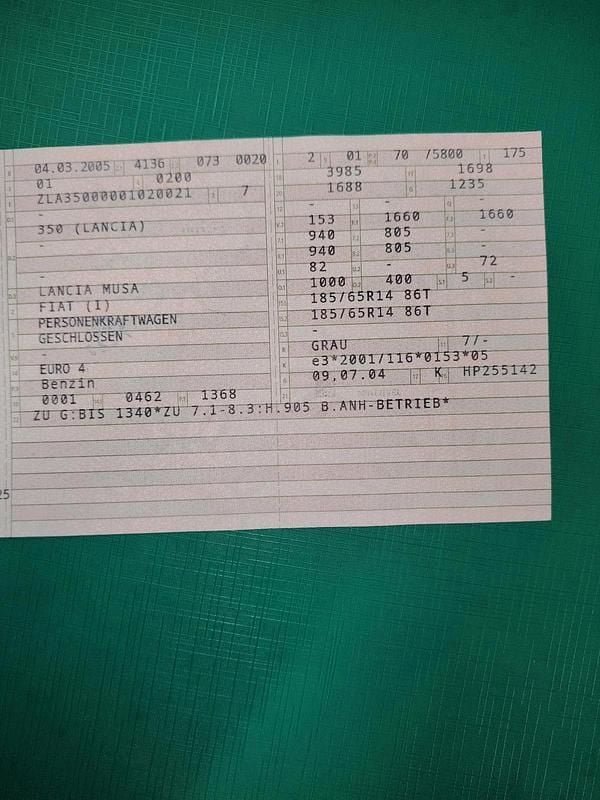 04.03.2005 4136 073 0020
01 0200
ZLA35000001020021 7
-
350 (LANCIA)
-
-
LANCIA MUSA
FIAT (I)
PERSONENKRAFTWAGEN
GESCHLOSSEN
-
EURO 4
Benzin
0001 0462 1368
2 01 70 /5800 175
3985 1698
1688 1235
- - -
153 1660 1660
940 805 -
940 805 -
82 - 72
1000 400 5 -
185/65R14 86T
185/65R14 86T
-
GRAU 7/-
e3*2001/116*0153*05
09.07.04 K HP255142
ZU G:BIS 1340*ZU 7.1-8.3:H.905 B.ANH-BETRIEB*
25